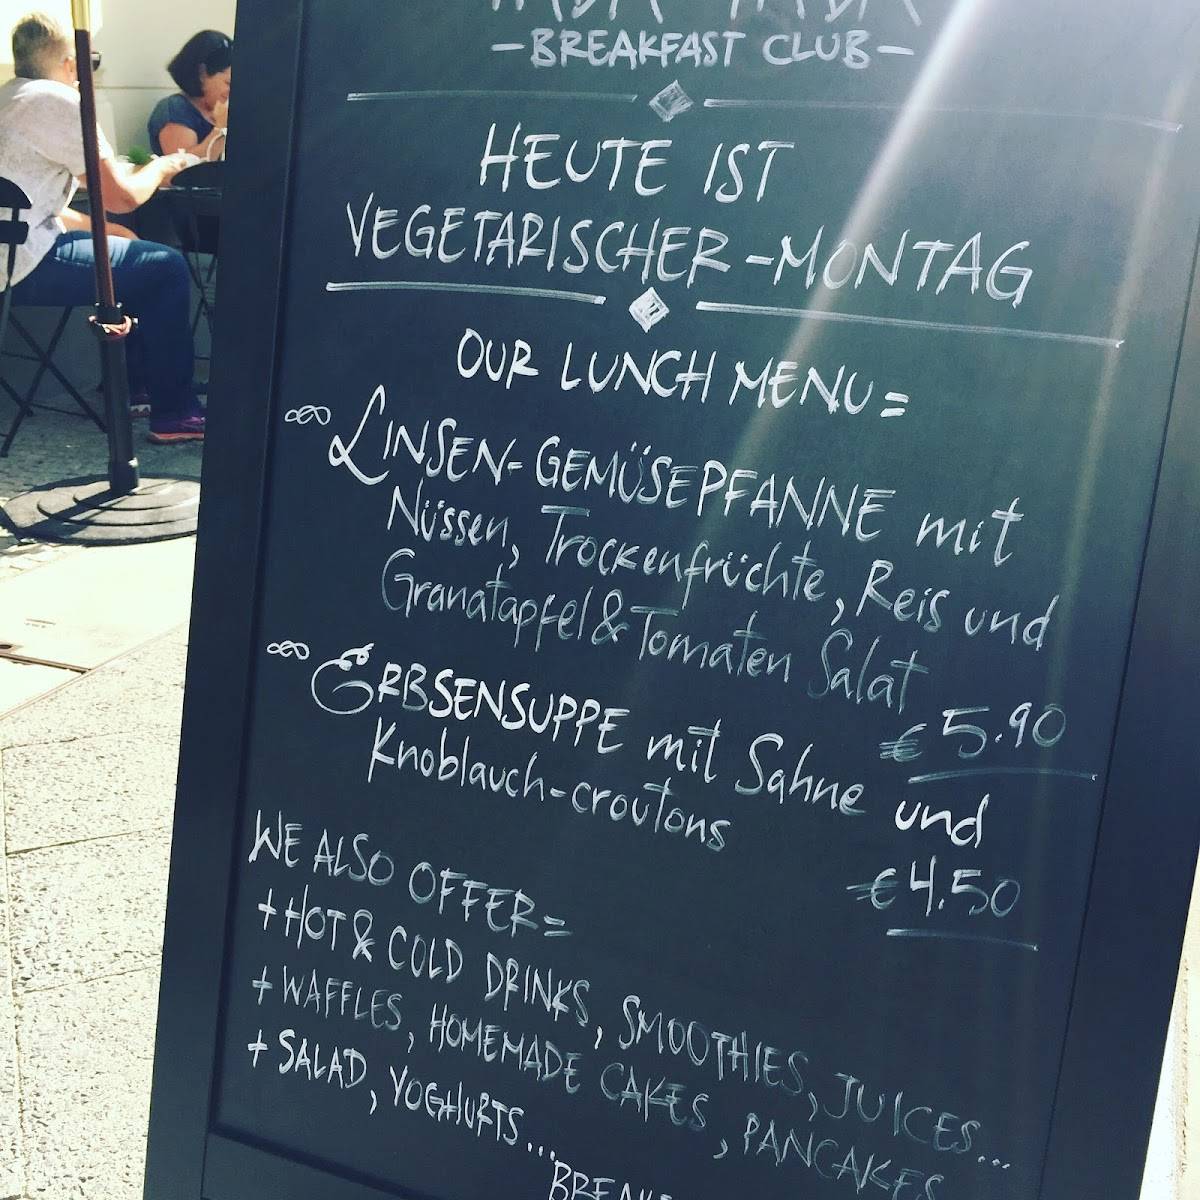 - BREAKFAST CLUB -
HEUTE IST
VEGETARISCHER - MONTAG
OUR LUNCH MENU =
LINSEN - GEMÜSEPFANNE mit
Nüssen, Trockenfrüchte, Reis und
Granatapfel & Tomaten Salat
€ 5.90
ERBSENSUPPE mit Sahne und
Knoblauch-croutons
€ 4.50
WE ALSO OFFER =
+ HOT & COLD DRINKS, SMOOTHIES, JUICES...
+ WAFFLES, HOMEMADE CAKES, PANCAKES
+ SALAD, YOGHURTS...